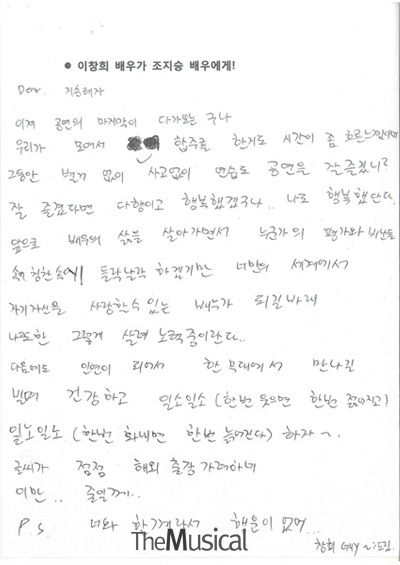 ● 이창희 배우가 조지승 배우에게!
Dear. 지승레자
이제 공연의 마지막이 다가오는 구나
우리가 모여서 합주를 한지도 시간이 좀 흐른느낌이네
그동안 별거 없이 사고없이 연습도 공연을 잘즐겼니?
잘 즐겼다면 다행이고 행복했겠구나.. 나도 행복했단다.
앞으로 배우의 삶을 살아가면서 누군가의 평가와 비난들
칭찬속에 들락날락 하겠지만 너만의 세계에서
자기자신을 사랑할수 있는 배우가 되길바래
나또한 그렇게 살려 노력중이란다..
다음에도 인연이 되어서 한 무대에서 만나길
빌며 건강하고 일소일소 (한번 웃으면 한번 젊어지고)
일노일노 (한번 화내면 한번 늙어진다) 하자~.
글씨가 점점 해외 출장 가려하네
이만.. 줄일게..
P.s 너와 함께라서 행운이 없어...
창희 GUY ~드림
TheMusical